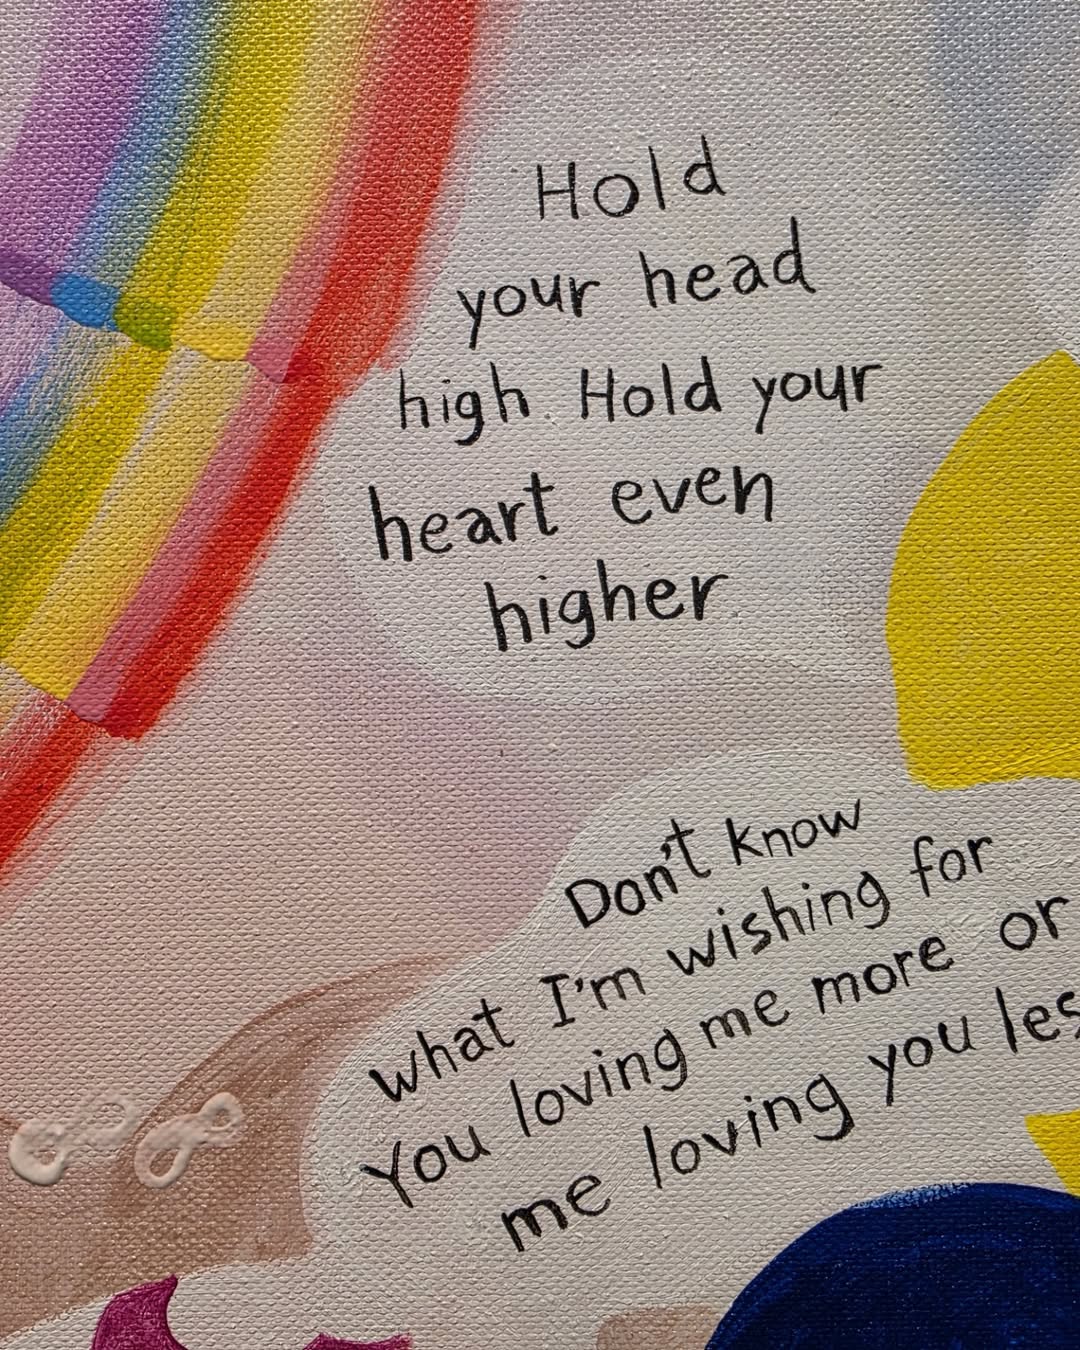 Hold
your head
high. Hold your
heart even
higher
Don't know
what I'm wishing for
You loving me more or
me loving you les